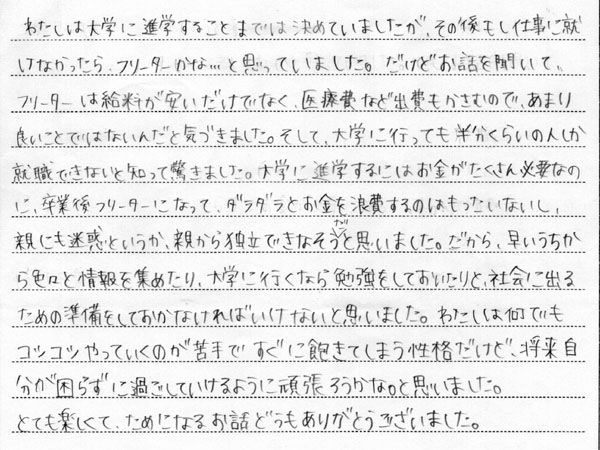 わたしは大学に進学することまでは決めていましたが、その後もし仕事に就
けなかったら、フリーターかな…と思っていました。だけどお話を聞いて、
フリーターは給料が安いだけでなく、医療費など出費もかさむので、あまり
良いことではないんだと気づきました。そして、大学に行っても半分くらいの人しか
就職できないと知って驚きました。大学に進学するにはお金がたくさん必要なの
に、卒業後フリーターになって、ダラダラとお金を浪費するのはもったいないし、
親にも迷惑というか、親から独立できなそうだと思いました。だから、早いうちか
ら色々と情報を集めたり、大学に行くなら勉強をしておいたりと、社会に出る
ための準備をしておかなければいけないと思いました。わたしは何でも
コツコツやっていくのが苦手で すぐに飽きてしまう性格だけど、将来自
分が困らずに過ごしていけるように頑張ろうかな。と思いました。
とても楽しくて、ためになるお話どうもありがとうございました。